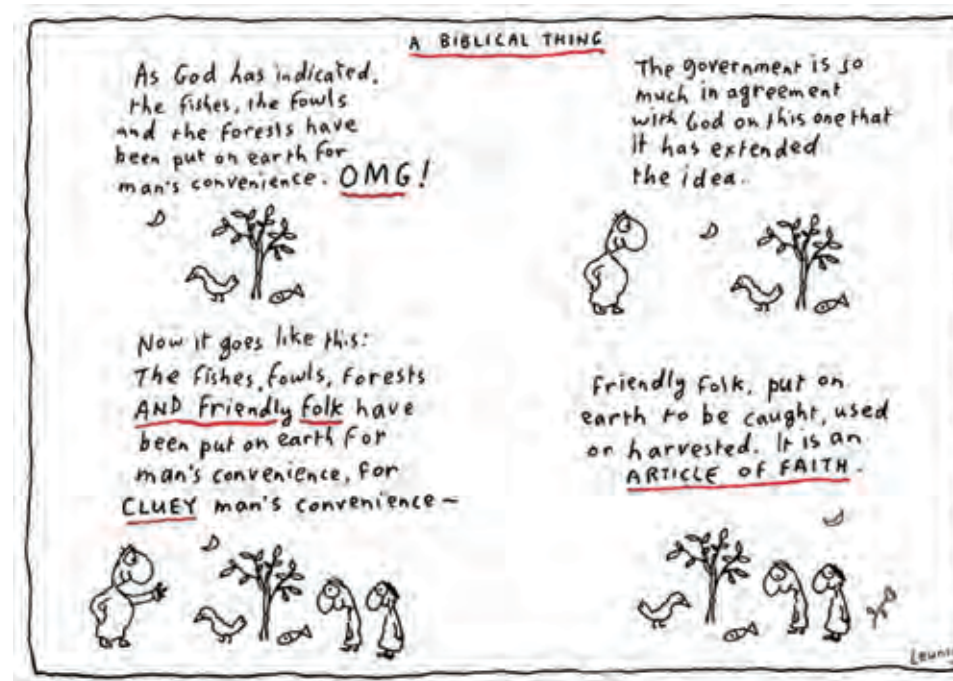 A BIBLICAL THING
As God has indicated,
the fishes, the fowls
and the forests have
been put on earth for
man's convenience. OMG!
The government is so
much in agreement
with God on this one that
it has extended
the idea.
Now it goes like this:
The fishes, fowls, forests
AND friendly folk have
been put on earth for
man's convenience, for
CLUEY man's convenience ~
Friendly folk, put on
earth to be caught, used
or harvested. It is an
ARTICLE OF FAITH.
Leunig